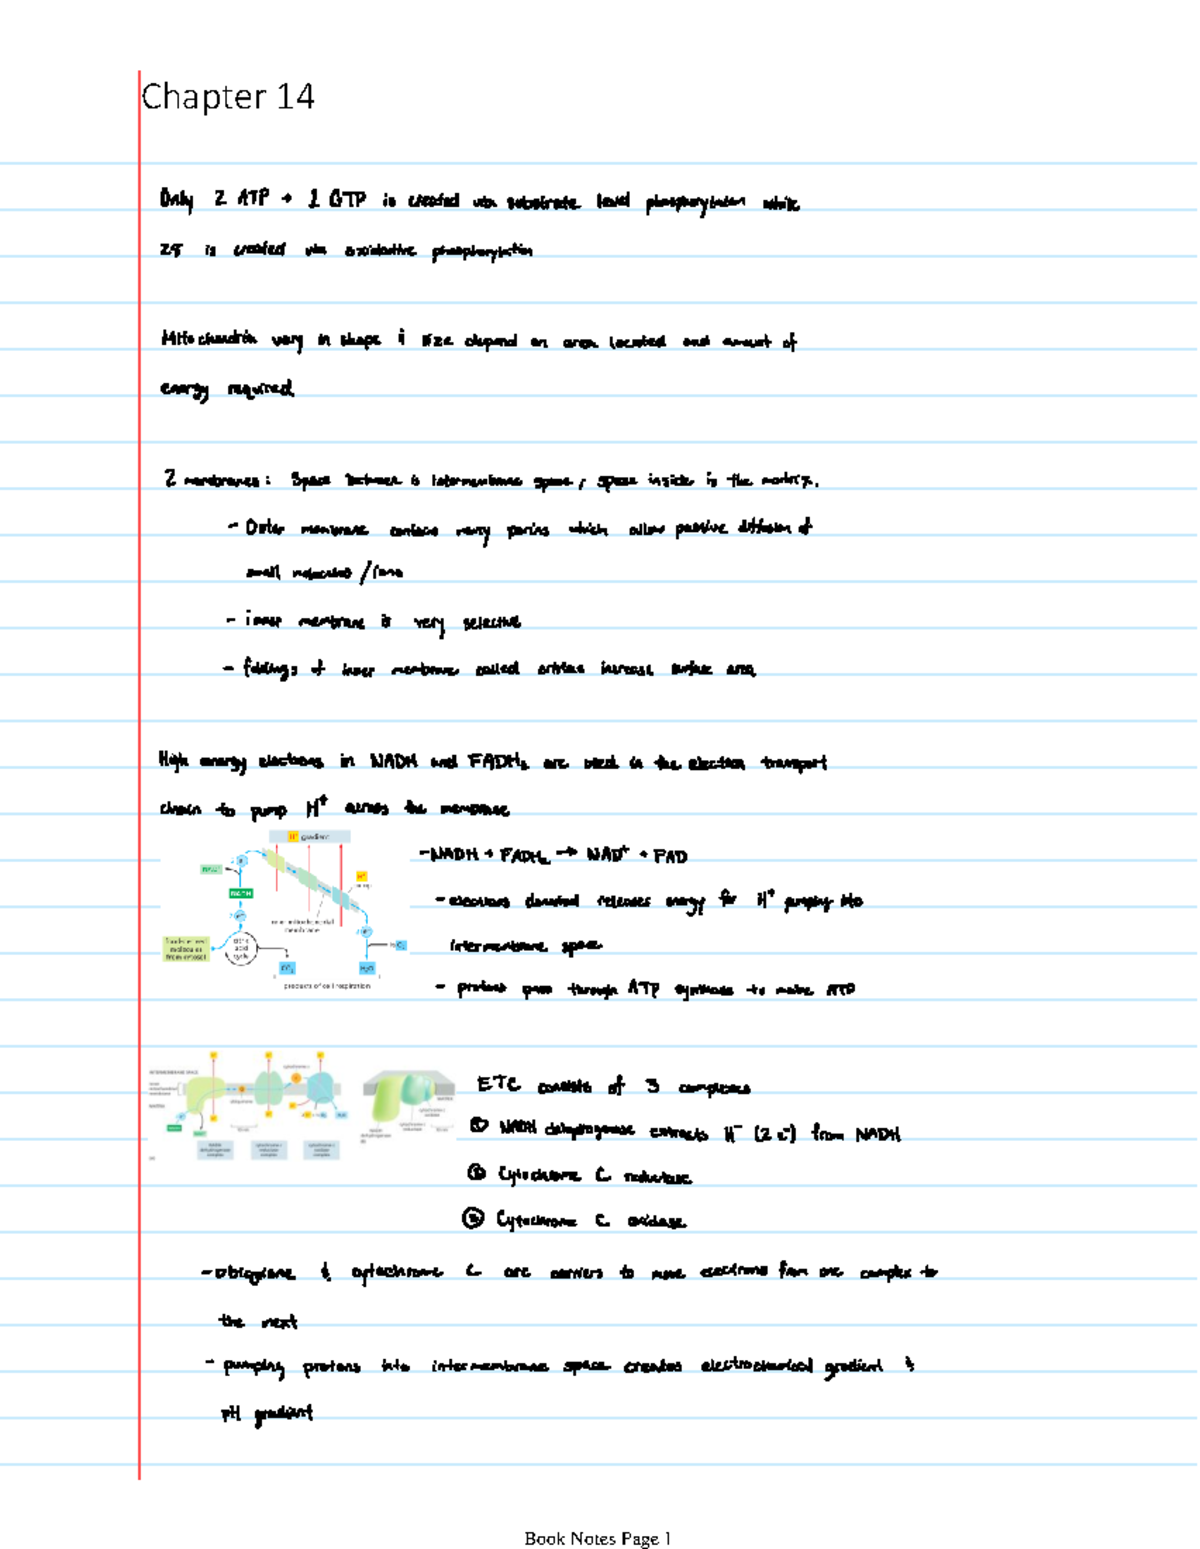 Chapter 14
Only 2 ATP + 1 GTP is created via substrate level phosphorylation while
28 is created via oxidative phosphorylation
Mitochondria vary in shape & size depend on area located and amount of
energy required.
2 membranes: Space between is intermembrane space, space inside is the matrix.
- Outer membrane contains many porins which allow passive diffusion of
small molecules / ions
- inner membrane is very selective
- foldings of inner membrane called cristae increase surface area
High energy electrons in NADH and FADH₂ are used in the electron transport
chain to pump H⁺ across the membrane
H⁺ gradient
- NADH + FADH₂ → NAD⁺ + FAD
NADH
- electrons donated releases energy for H⁺ pumping into
intermembrane space
membrane
citric acid cycle
CO₂
H₂O
products of cell respiration
- protons pass through ATP synthase to make ATP
ETC consists of 3 complexes
① NADH dehydrogenase extracts H⁻ (2 e⁻) from NADH
② Cytochrome C reductase
③ Cytochrome C oxidase
- ubiquinone & cytochrome C are carriers to move electrons from one complex to
the next
- pumping protons into intermembrane space creates electrochemical gradient &
pH gradient
Book Notes Page 1